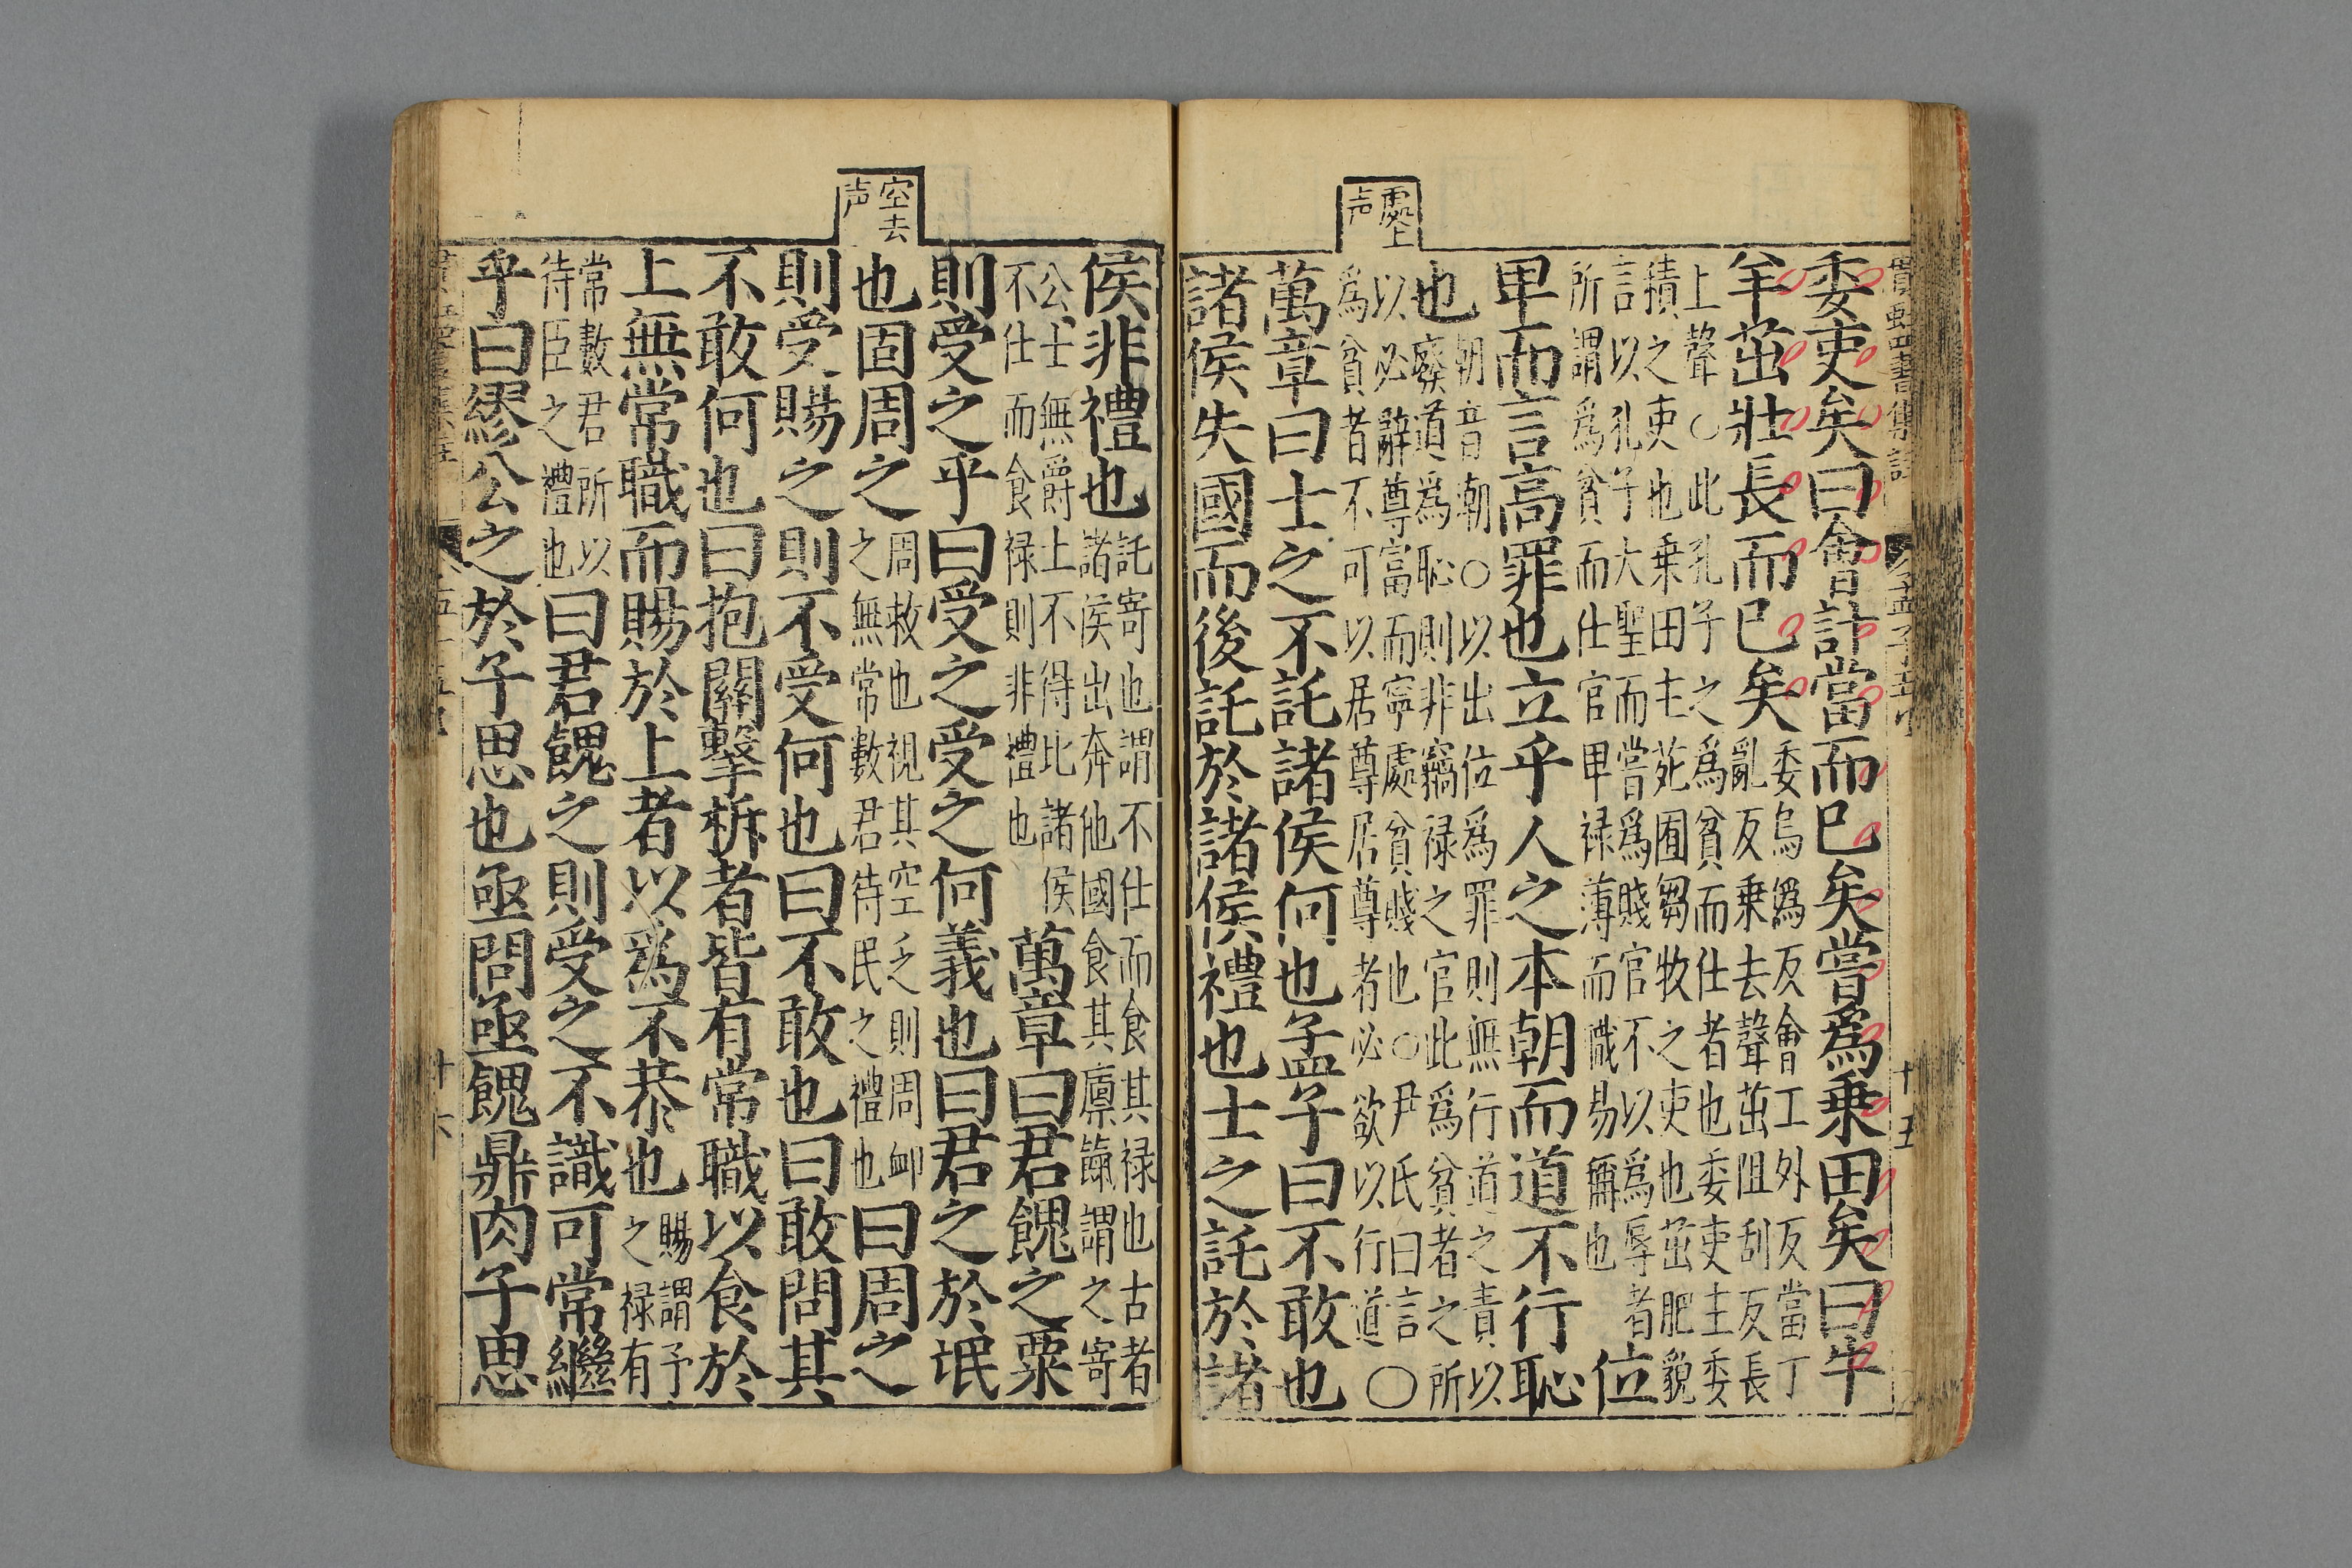 處上
声
委吏矣曰會計當而已矣嘗爲乗田矣曰牛
羊茁壯長而已矣
委烏僞反會工外反當丁
亂反乗去聲茁阻刮反長
上聲○此孔子之爲貧而仕者也委吏主委
積之吏也乗田主苑囿芻牧之吏也茁肥貌
言以孔子大聖而嘗爲賤官不以爲辱者
所謂爲貧而仕官卑禄薄而職易稱也
位
卑而言高罪也立乎人之本朝而道不行恥
也
朝音朝○以出位爲罪則無行道之責以
廢道爲恥則非竊禄之官此爲貧者之所
以必辭尊富而寧處貧賤也○尹氏曰言
爲貧者不可以居尊居尊者必欲以行道
○
萬章曰士之不託諸侯何也孟子曰不敢也
諸侯失國而後託於諸侯禮也士之託於諸
十五
空去
声
侯非禮也
託寄也謂不仕而食其禄也古者
諸侯出奔他國食其廩餼謂之寄
公士無爵土不得比諸侯
不仕而食禄則非禮也
萬章曰君餽之粟
則受之乎曰受之受之何義也曰君之於氓
也固周之
周救也視其空乏則周卹
之無常數君待民之禮也
曰周之
則受賜之則不受何也曰不敢也曰敢問其
不敢何也曰抱關擊柝者皆有常職以食於
上無常職而賜於上者以爲不恭也
賜謂予
之禄有
常數君所以
待臣之禮也
曰君餽之則受之不識可常繼
乎曰繆公之於子思也亟問亟餽鼎肉子思
十六